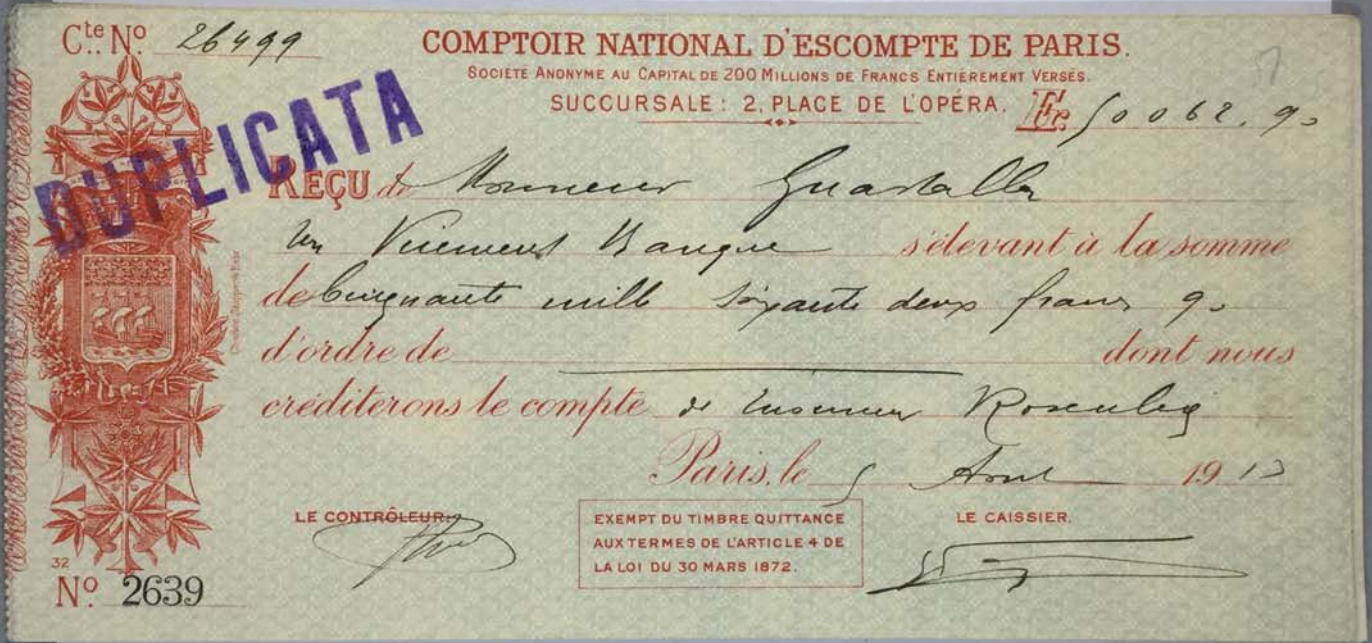 Cte. No. 26499
COMPTOIR NATIONAL D'ESCOMPTE DE PARIS.
SOCIÉTÉ ANONYME AU CAPITAL DE 200 MILLIONS DE FRANCS ENTIÈREMENT VERSÉS.
SUCCURSALE : 2, PLACE DE L'OPÉRA. Fr. 50062.90
DUPLICATA
REÇU de Monsieur Guastalla
un Virement Banque s'élevant à la somme
de Cinquante mille soixante deux francs 90
d'ordre de dont nous
créditerons le compte de Monsieur Rosenberg
Paris, le 5 Aout 1913
LE CONTRÔLEUR,
EXEMPT DU TIMBRE QUITTANCE
AUX TERMES DE L'ARTICLE 4 DE
LA LOI DU 30 MARS 1872.
LE CAISSIER,
32
No. 2639